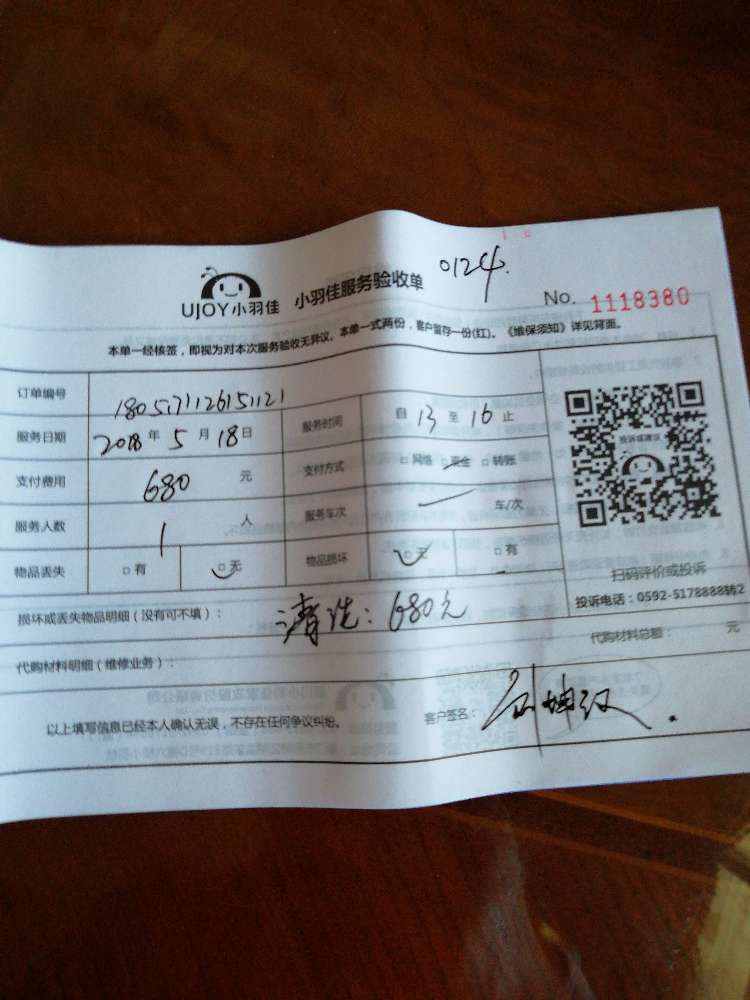 UJOY小羽佳 小羽佳服务验收单 0124.
No. 1118380
本单一经核签，即视为对本次服务验收无异议。本单一式两份，客户留存一份(红)。《维保须知》详见背面。
订单编号 1805171126151121
服务日期 2018年5月18日 服务时间 自13至16止
支付费用 680元 支付方式 □网络 □现金 □转账
服务人数 1人 服务车次 车/次
物品丢失 □有 □无 物品损坏 □无 □有
投诉或建议
扫码评价或投诉
投诉电话：0592-5178888转2
损坏或丢失物品明细（没有可不填）： 清洗：680元
代购材料明细（维修业务）： 代购材料总额： 元
以上填写信息已经本人确认无误，不存在任何争议纠纷。 客户签名：